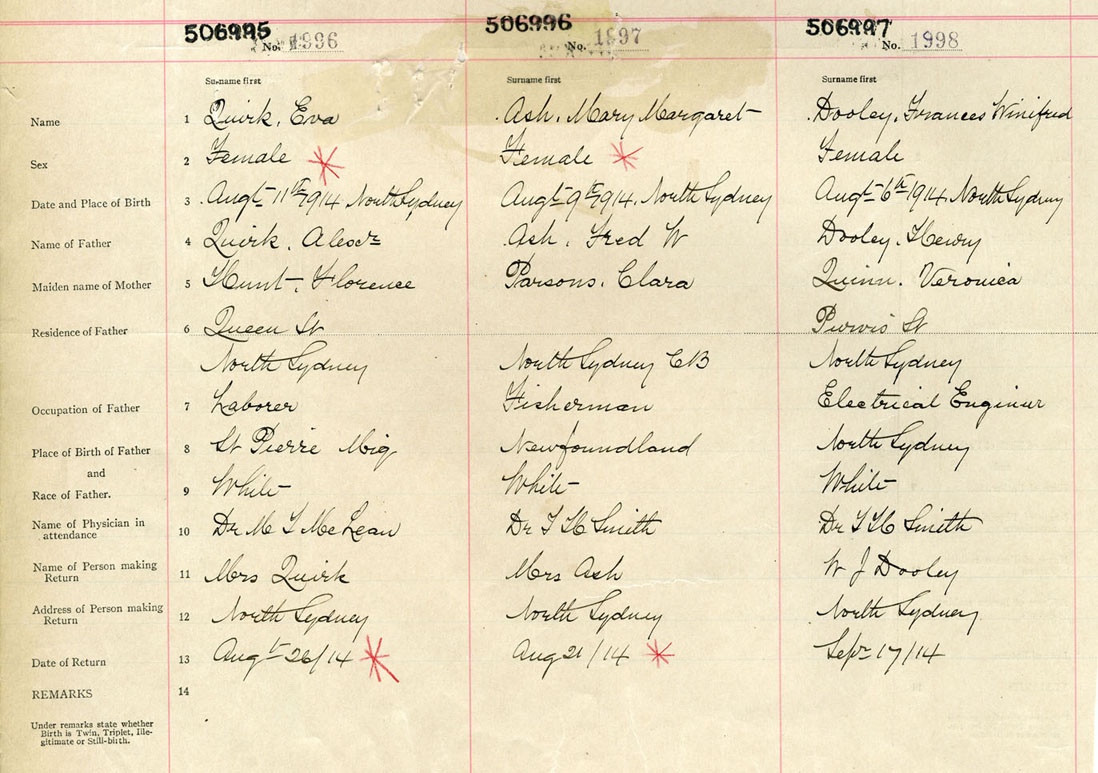 506995 506996 506997
No. 1996 No. 1897 No. 1998
Surname first Surname first Surname first
Name 1 Quirk, Eva Ash, Mary Margaret Dooley, Frances Winifred
Sex 2 Female Female Female
Date and Place of Birth 3 Augt 11th 1914 North Sydney Augt 9th 1914, North Sydney Augt 6th 1914, North Sydney
Name of Father 4 Quirk, Alexr Ash, Fred W Dooley, Henry
Maiden name of Mother 5 Hunt, Florence Parsons, Clara Quinn, Veronica
Residence of Father 6 Queen St Purvis St
North Sydney North Sydney CB North Sydney
Occupation of Father 7 Laborer Fisherman Electrical Enginer
Place of Birth of Father 8 St Pierre Miq Newfoundland North Sydney
and
Race of Father. 9 White White White
Name of Physician in
attendance 10 Dr M T McLean Dr T H Smith Dr T H Smith
Name of Person making
Return 11 Mrs Quirk Mrs Ash W J Dooley
Address of Person making
Return 12 North Sydney North Sydney North Sydney
Date of Return 13 Augt 26/14 Aug 21/14 Sepr 17/14
REMARKS 14
Under remarks state whether
Birth is Twin, Triplet, Ille-
gitimate or Still-birth.